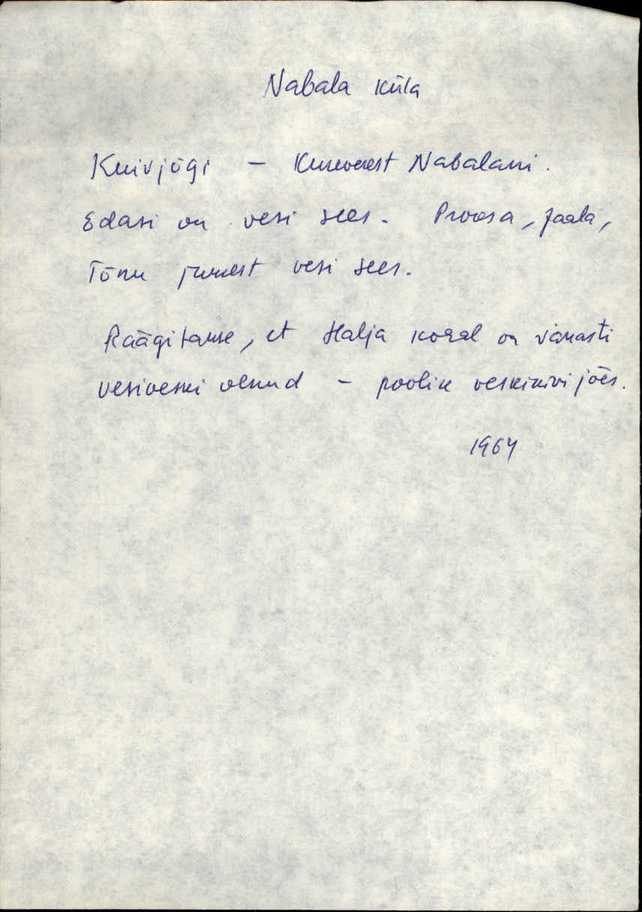 Nabala küla
Kuivjõgi – Kureverest Nabalani.
Edasi on vesi sees. Proosa, Jaala,
Tõnu juurest vesi sees.
Räägitakse, et Halja kohal on vanasti
vesiveski olnud – poolik veskikivi jões.
1964